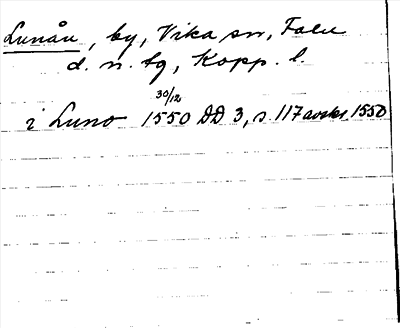 Lunån, by, Vika sn, Falu
d. n. tg, Kopp. l.
30/12
i Luno 1550 DD 3, s. 117 avskr. 1550